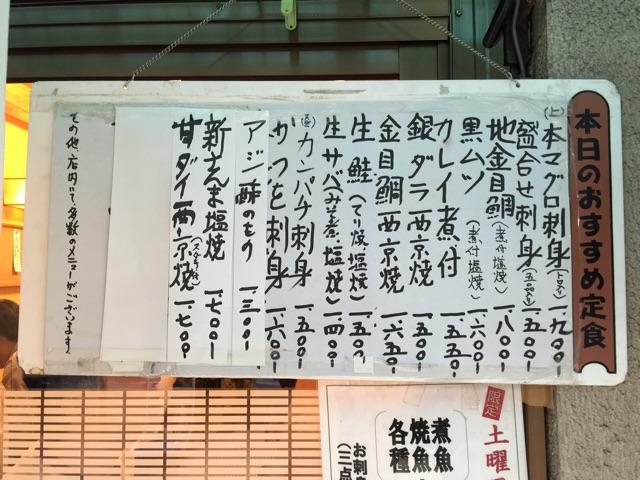 本日のおすすめ定食
(上)本マグロ刺身(トロ入) 一、九〇〇-
盛合せ刺身(五品入り) 一、五〇〇-
地金目鯛(煮付 塩焼) 一、八〇〇-
黒ムツ(煮付 塩焼) 一、六〇〇-
カレイ煮付 一、五五〇-
銀ダラ西京焼 一、五〇〇-
金目鯛西京焼 一、六五〇-
生鮭(てり焼 塩焼) 一、五〇〇-
生サバ(みそ煮、塩焼) 一、四〇〇-
カンパチ刺身 一、五〇〇-
かつを刺身 一、六〇〇-
アジ酢のもの 一、三〇〇-
新さんま塩焼 一、七〇〇-
甘ダイ西京焼 一、七〇〇
その他、店内にて多数のメニューがございます
限定
土曜
煮魚
焼魚
各種
お刺
(三点